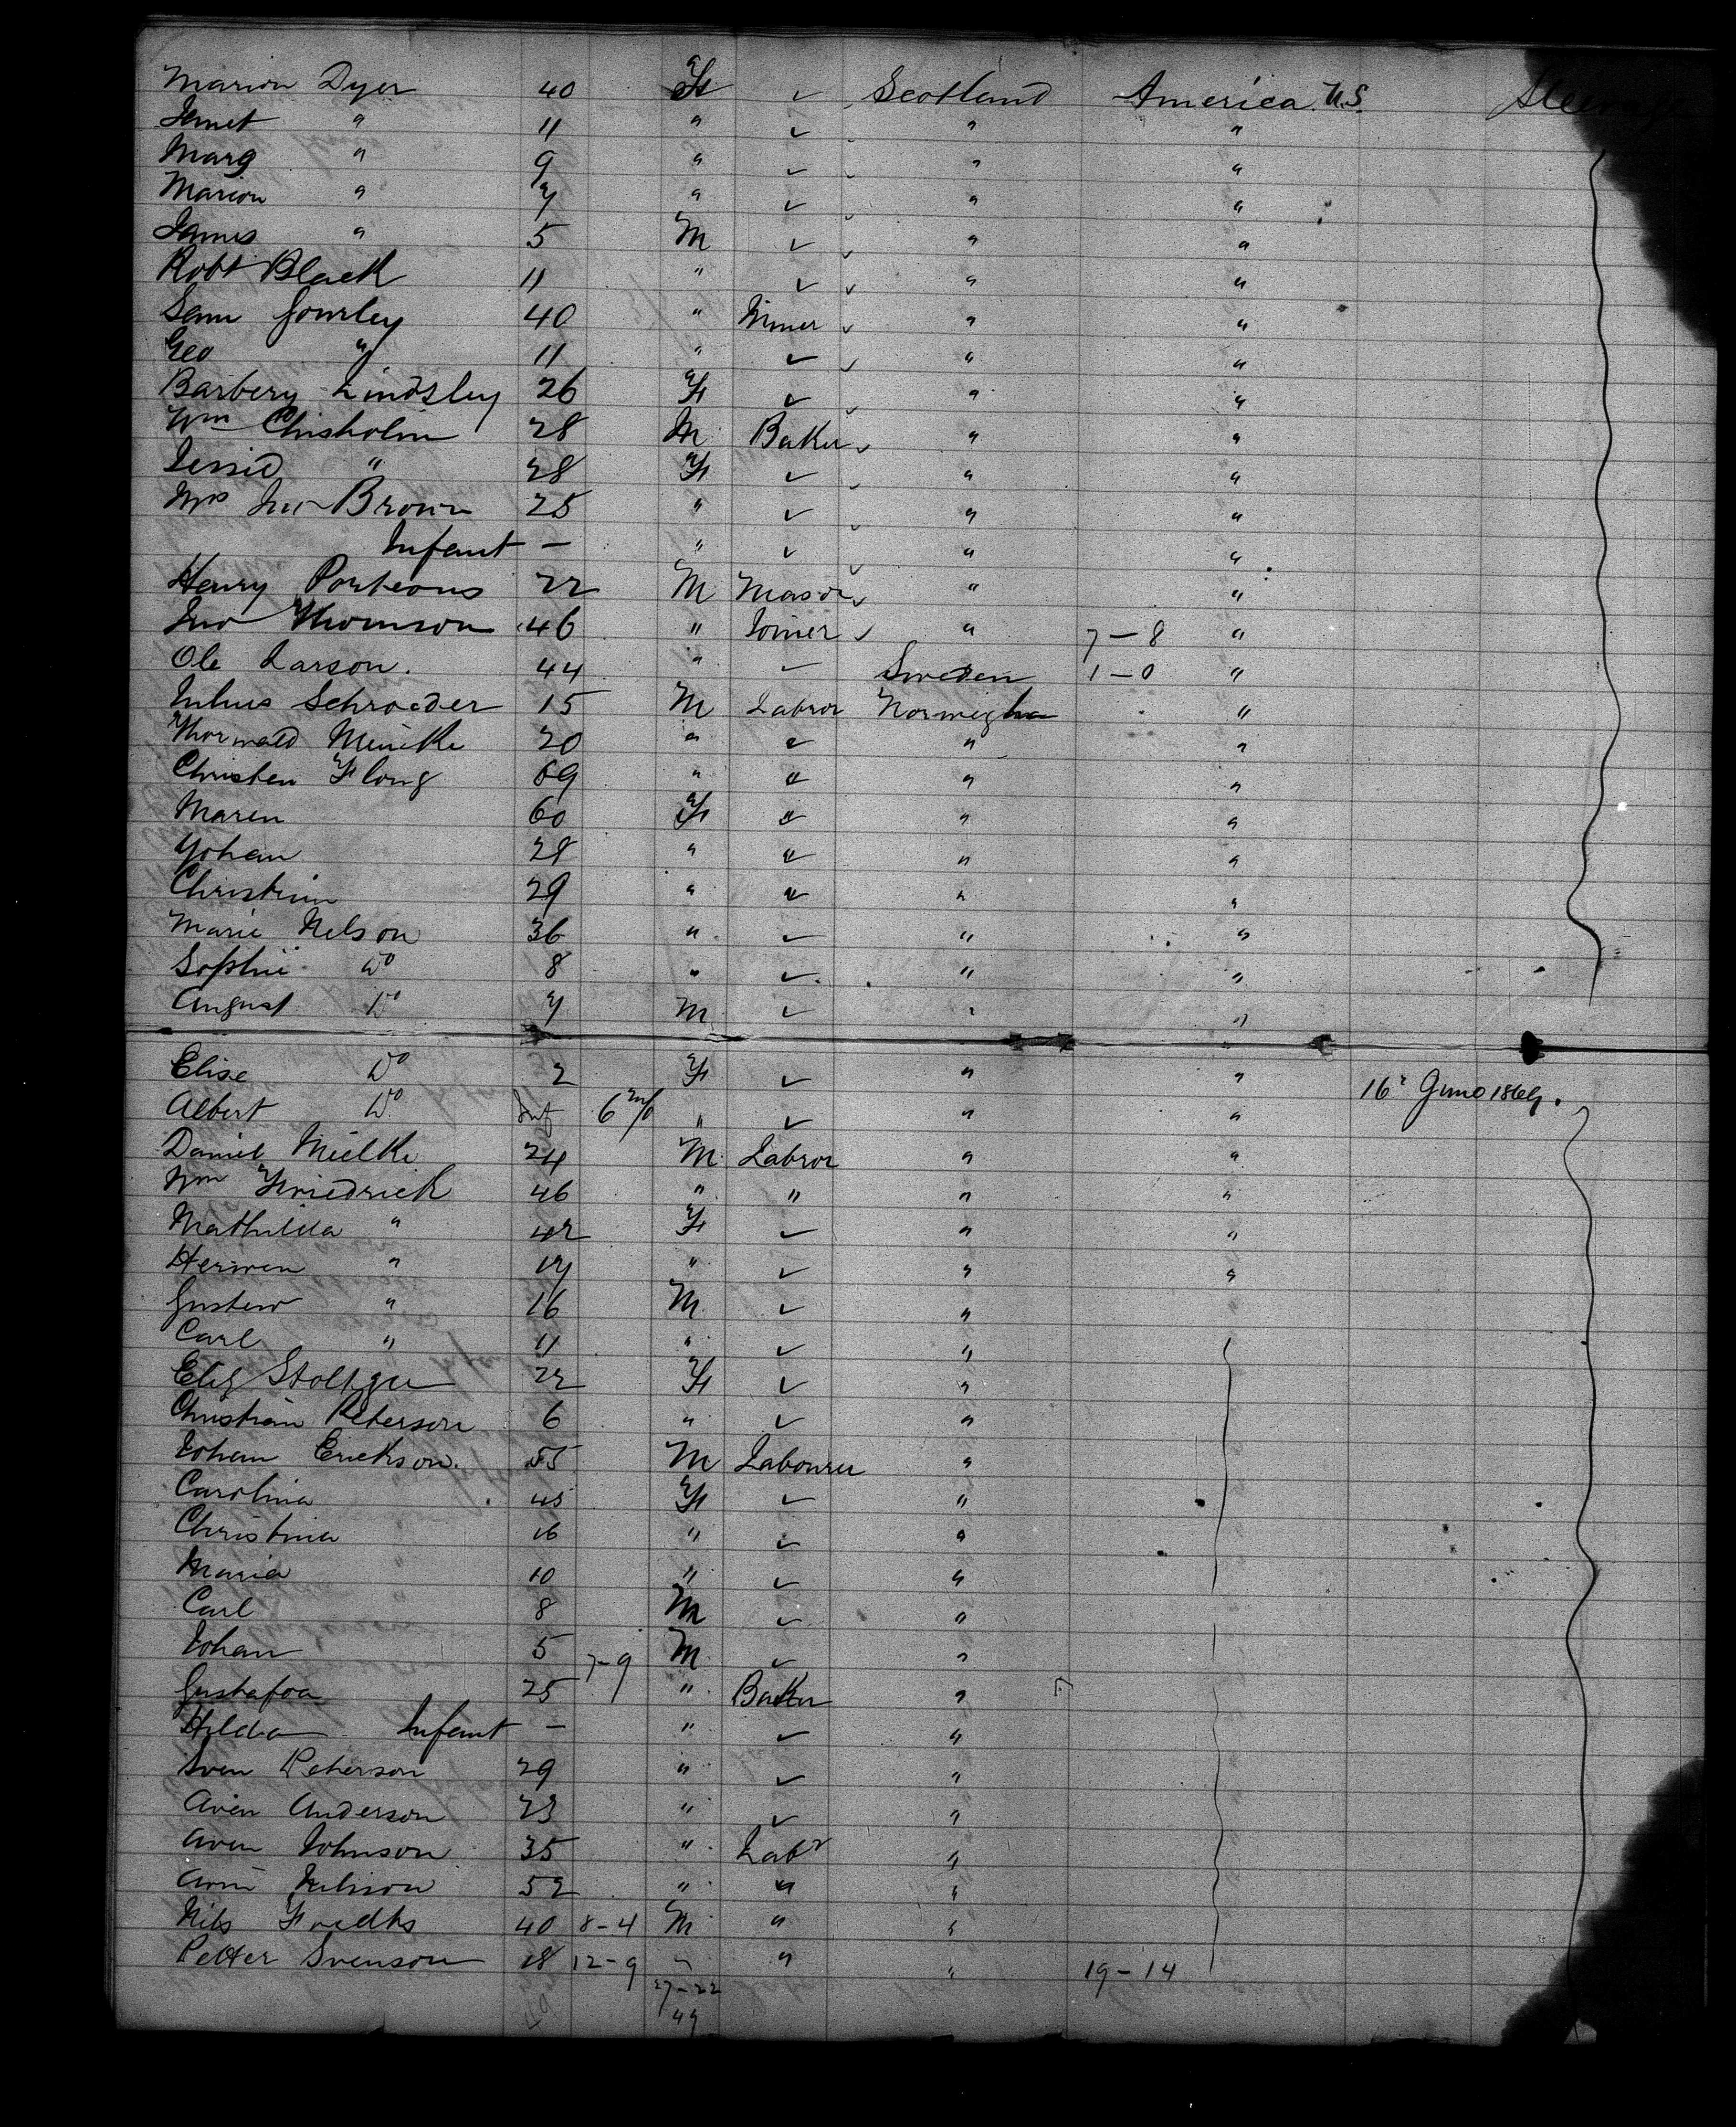 Marion Dyer 40 F ✓ Scotland America U.S. Steerage
Jennet " 11 " ✓ " "
Marg " 9 " ✓ " "
Marion " 7 " ✓ " "
James " 5 M ✓ " "
Robt Black 11 " ✓ " "
Sam Gourley 40 " Miner " "
Geo " 11 " ✓ " "
Barbery Lindsley 26 F ✓ " "
Wm Chisholm 28 M Baker " "
Jessie " 28 F ✓ " "
Mrs Jno Brown 25 " ✓ " "
Infant – " ✓ " "
Henry Porteous 22 M Mason " "
Jno Thomson 46 " Joiner " 7–8 "
Ole Larson 44 " ✓ Sweden 1–0 "
Julius Schroeder 15 M Labror Norwegian "
Thorwald Meinke 20 " " " "
Christen Flong 69 " " " "
Maren 60 F " " "
Yohan 28 " " " "
Christian 29 " " " "
Marie Nelson 36 " ✓ " "
Sophie Do 8 " ✓ " "
August Do 7 M ✓ " "
Elise Do 2 F ✓ " "
16 June 1869.
Albert Do Inf 6 m/o " ✓ " "
Daniel Mielke 24 M Labror " "
Wm Friedrick 46 " " " "
Mathilda " 42 F ✓ " "
Hermen " 17 " ✓ " "
Gustew " 16 M ✓ "
Carl " 11 " ✓ "
Eliz 22 F ✓ "
Christian Peterson 6 " ✓ "
Johan Erickson. 55 M Labourer "
Carolina 45 F ✓ "
Christina 16 " ✓ "
Maria 10 " ✓ "
Carl 8 M ✓ "
Johan 5 7–9 M ✓ "
Gustafoa 25 " Baker "
Hilda Infant – " ✓ "
Sven Peterson 29 " ✓ "
Aven Anderson 23 " ✓ "
Aven Johnson 35 " Labr "
52 " " "
Nils 40 8–4 M " "
Petter Svenson 18 12–9 " " " 19–14
27–22
49